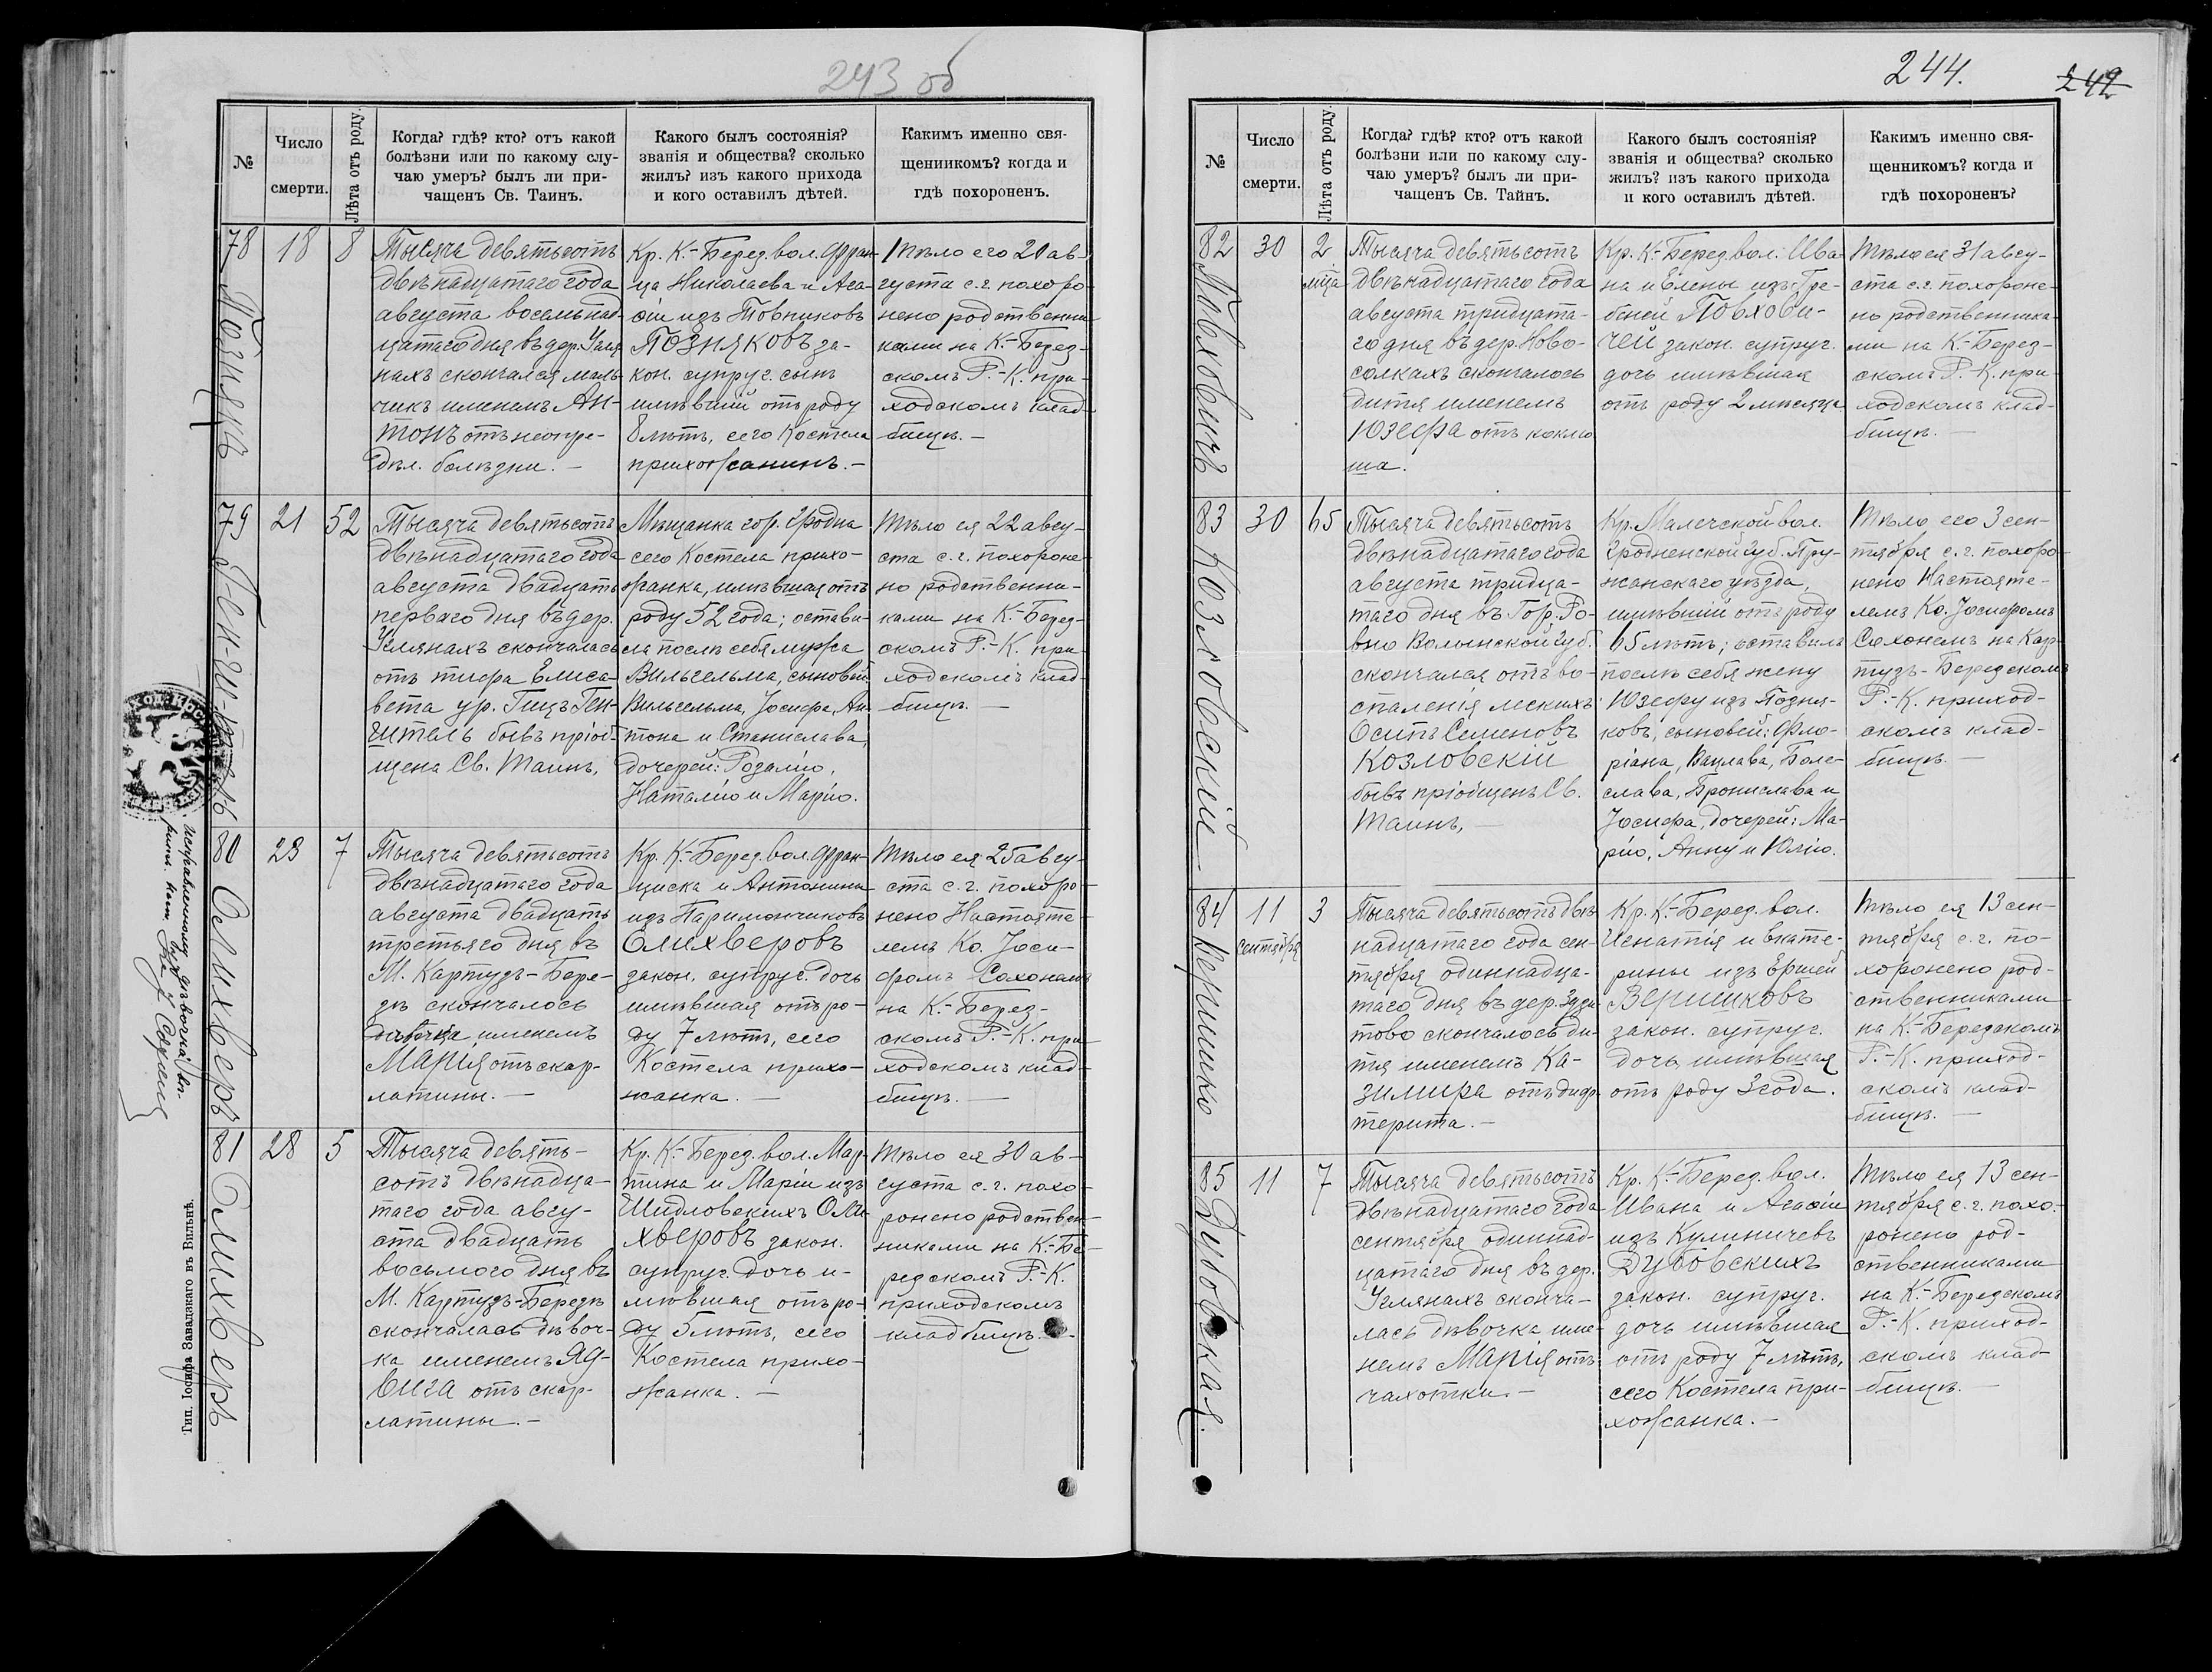 243 об
№
Число
смерти.
Лѣта отъ роду.
Когда? гдѣ? кто? отъ какой
болѣзни или по какому слу-
чаю умеръ? былъ ли при-
чащенъ Св. Таинъ.
Какого былъ состоянія?
званія и общества? сколько
жилъ? изъ какого прихода
и кого оставилъ дѣтей.
Какимъ именно свя-
щенникомъ? когда и
гдѣ похороненъ.
78
Познякъ
18
8
Тысяча девятьсотъ
двѣнадцатаго года
августа восемьнад-
цатаго дня въ дер. Угля
нахъ скончался маль-
чикъ именемъ Ан-
тонъ отъ неопре-
дѣл. болѣзни. —
Кр. К.-Берез. вол. Фран-
ца Николаева и Ага-
фіи изъ Товпиковъ
Позняковъ за-
кон. супруг. сынъ
имѣвшій отъ роду
8 лѣтъ, сего Костела
прихожанинъ. —
Тѣло его 20 ав-
густа с.г. похоро-
нено родственни-
ками на К.-Берез-
скомъ Р.-К. при-
ходскомъ клад-
бищѣ. —
79
21
52
Тысяча девятьсотъ
двѣнадцатаго года
августа двадцать
перваго дня въ дер.
Углянахъ скончалась
отъ тифа Елиса-
вета ур. Гицъ Ген-
шпель бывъ пріоб-
щена Св. Таинъ,
Мѣщанка гор. Гродна
сего Костела прихо-
жанка, имѣвшая отъ
роду 52 года; остави-
ла послѣ себя мужа
Вильгельма, сыновей
Вильгельма, Іосифа, Ан-
тона и Станислава,
дочерей: Розалію,
Наталію и Марію.
Тѣло ея 22 авгу-
ста с.г. похороне-
но родственни-
ками на К.-Берез-
скомъ Р.-К. при-
ходскомъ клад-
бищѣ. —
80
Олихверъ
23
7
Тысяча девятьсотъ
двѣнадцатаго года
августа двадцать
третьяго дня въ
М. Картузъ-Бере-
зѣ скончалось
дѣвочка именемъ
Марія отъ скар-
латины. —
Кр. К.-Берез. вол. Фран-
циска и Антонины
изъ Паримончиковъ
Олихверовъ
закон. супруг. дочь
имѣвшая отъ ро-
ду 7 лѣтъ, сего
Костела прихо-
жанка. —
Тѣло ея 25 авгу-
ста с.г. похоро-
нено Настояте-
лемъ Кс. Іоси-
фомъ Сахономъ
на К.-Берез-
скомъ Р.-К. при-
ходскомъ клад-
бищѣ. —
исправленному "дѣвочка"
81
Олихверъ
28
5
Тысяча девять-
сотъ двѣнадца-
таго года авгу-
ста двадцать
восьмого дня въ
М. Картузъ-Березѣ
скончалась дѣвоч-
ка именемъ Яд-
вига отъ скар-
латины. —
Кр. К.-Берез. вол. Мар-
тина и Маріи изъ
Шидловскихъ Оли-
хверовъ закон.
супруг. дочь и-
мѣвшая отъ ро-
ду 5 лѣтъ, сего
Костела прихо-
жанка. —
Тѣло ея 30 ав-
густа с.г. похо-
ронено родствен-
никами на К.-Бе-
резскомъ Р.-К.
приходскомъ
кладбищѣ. —
Тип. Іосифа Завадзкаго въ Вильнѣ.
244.
242
№
Число
смерти.
Лѣта отъ роду.
Когда? гдѣ? кто? отъ какой
болѣзни или по какому слу-
чаю умеръ? былъ ли при-
чащенъ Св. Тайнъ.
Какого былъ состоянія?
званія и общества? сколько
жилъ? изъ какого прихода
и кого оставилъ дѣтей.
Какимъ именно свя-
щенникомъ? когда и
гдѣ похороненъ?
82
Повховичъ
30
2
мца
Тысяча девятьсотъ
двѣнадцатаго года
августа тридцата-
го дня въ дер. Ново-
солкахъ скончалось
дитя именемъ
Юзефа отъ коклю
ша.
Кр. К.-Берез. вол. Ива-
на и Елены изъ Гре-
беней Повхови-
чей закон. супруг.
дочь имѣвшая
отъ роду 2 мѣсяца
Тѣло ея 31 авгу-
ста с.г. похороне-
но родственника-
ми на К.-Берез-
скомъ Р.-К. при-
ходскомъ клад-
бищѣ. —
83
Козловскій
30
65
Тысяча девятьсотъ
двѣнадцатаго года
августа тридца-
таго дня въ Гор. Ро-
вно Волынской губ.
скончался отъ во-
спаленія легкихъ
Осипъ Семеновъ
Козловскій
бывъ пріобщенъ Св.
Таинъ, —
Кр. Малечской вол.
Гродненской губ. Пру-
жанскаго уѣзда,
имѣвшій отъ роду
65 лѣтъ; оставилъ
послѣ себя жену
Юзефу изъ Позня-
ковъ, сыновей: Фло-
ріана, Вацлава, Боле-
слава, Бронислава и
Іосифа, дочерей: Ма-
рію, Анну и Юлію.
Тѣло его 3 сен-
тября с.г. похоро-
нено Настояте-
лемъ Кс. Іосифомъ
Сахономъ на Кар-
тузъ-Березскомъ
Р.-К. приход-
скомъ клад-
бищѣ. —
84
Вершишко
11
сентября
3
Тысяча девятьсотъ двѣ-
надцатаго года сен-
тября одиннадца-
таго дня въ дер. Здзи-
тово скончалось ди-
тя именемъ Ка-
зимира отъ диф-
терита. —
Кр. К.-Берез. вол.
Игнатія и Екате-
рины изъ Ершей
Вершиковъ
закон. супруг.
дочь имѣвшая
отъ роду 3 года.
Тѣло ея 13 сен-
тября с.г. по-
хоронено род-
ственниками
на К.-Березскомъ
Р.-К. приход-
скомъ клад-
бищѣ. —
85
Дубовская.
11
7
Тысяча девятьсотъ
двѣнадцатаго года
сентября одиннад-
цатаго дня въ дер.
Углянахъ сконча-
лась дѣвочка име-
немъ Марія отъ
чахотки. —
Кр. К.-Берез. вол.
Ивана и Агафіи
изъ Кулиничевъ
Дубовскихъ
закон. супруг.
дочь имѣвшая
отъ роду 7 лѣтъ,
сего Костела при-
хожанка. —
Тѣло ея 13 сен-
тября с.г. похо-
ронено род-
ственниками
на К.-Березскомъ
Р.-К. приход-
скомъ клад-
бищѣ. —